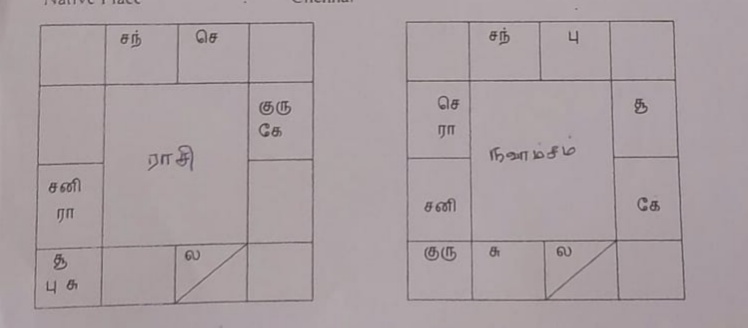 Native Place : Chennai
சந்
செ
குரு
கே
ராசி
சனி
ரா
சூ
பு சு
ல
சந்
பு
செ
ரா
சூ
நவாம்சம்
சனி
கே
குரு
சு
ல